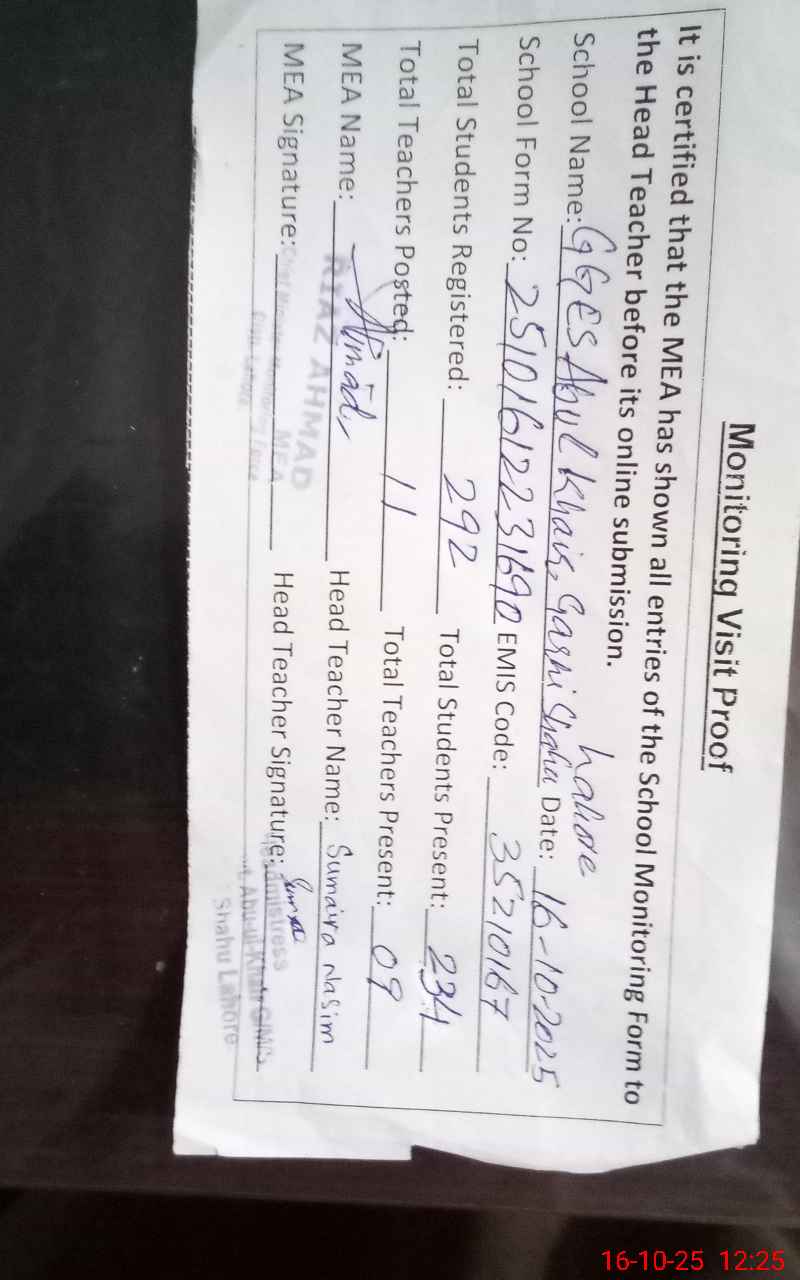 Monitoring Visit Proof
It is certified that the MEA has shown all entries of the School Monitoring Form to
the Head Teacher before its online submission.
School Name: GGES Abul Khair, Garhi Shahu Lahore Date: 16-10-2025
School Form No: 25101612231690 EMIS Code: 35210167
Total Students Registered: 292 Total Students Present: 234
Total Teachers Posted: 11 Total Teachers Present: 09
MEA Name: Ahmad Head Teacher Name: Sumaira Nasim
RIAZ AHMAD
MEA
MEA Signature: Head Teacher Signature:
Headmistress
Shahu Lahore
16-10-25 12:25